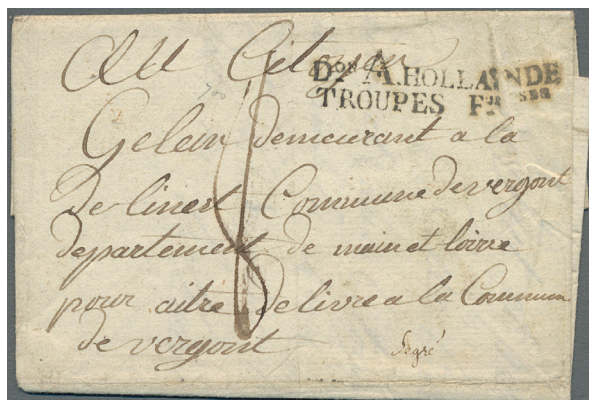 Au Citoyen
Don A. HOLLANDE
TROUPES Fses
Gelan demeurant a la
De linest Commune de vergont
departement de main et loire
pour aitre de livre a la Commun
de vergont
Segré
8